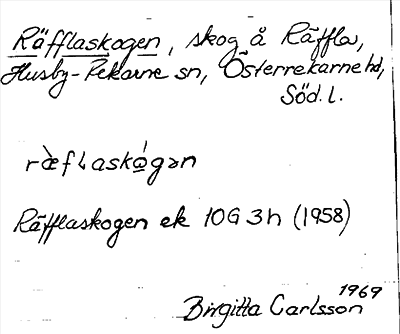 Räfflaskogen, skog å Räffla,
Husby-Rekarne sn, Österrekarne hd,
Söd. l.
ræ̀fɫaskó̱gən
Räfflaskogen ek 10G 3h (1958)
1969
Birgitta Carlsson